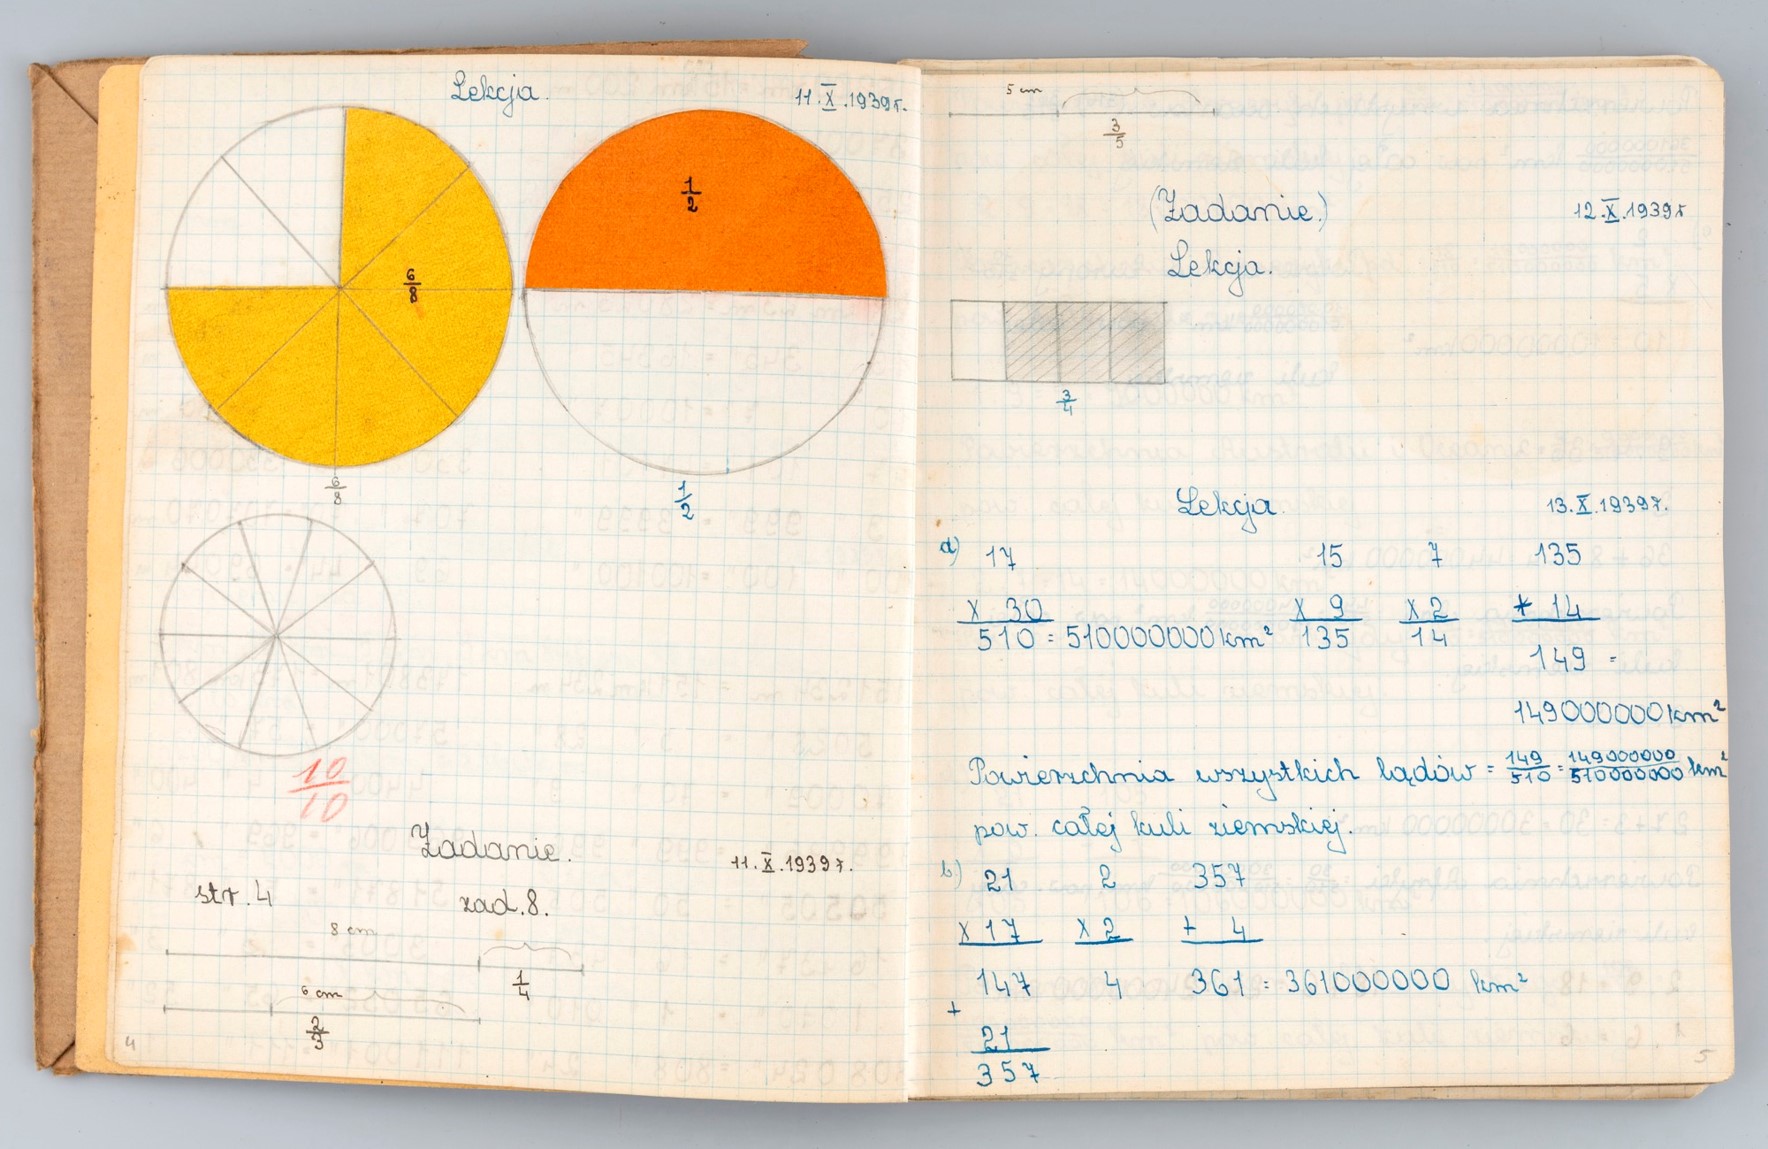 Lekcja. 11.X.1939r.
6/8
1/2
6/8
1/2
10/10
Zadanie. 11.X.1939r.
str. 4 zad. 8.
8 cm
1/4
6 cm
2/3
4
5 cm
3/5
(Zadanie.) 12.X.1939r
Lekcja.
3/4
Lekcja. 13.X.1939r.
a) 17 15 7 135
x 30 x 9 x 2 + 14
510 = 510000000 km² 135 14 149 =
149000000 km²
Powierzchnia wszystkich lądów = 149/510 = 149000000/510000000 km²
pow. całej kuli ziemskiej.
b) 21 2 357
x 17 x 2 + 4
147 4 361 = 361000000 km²
+
21
357
5